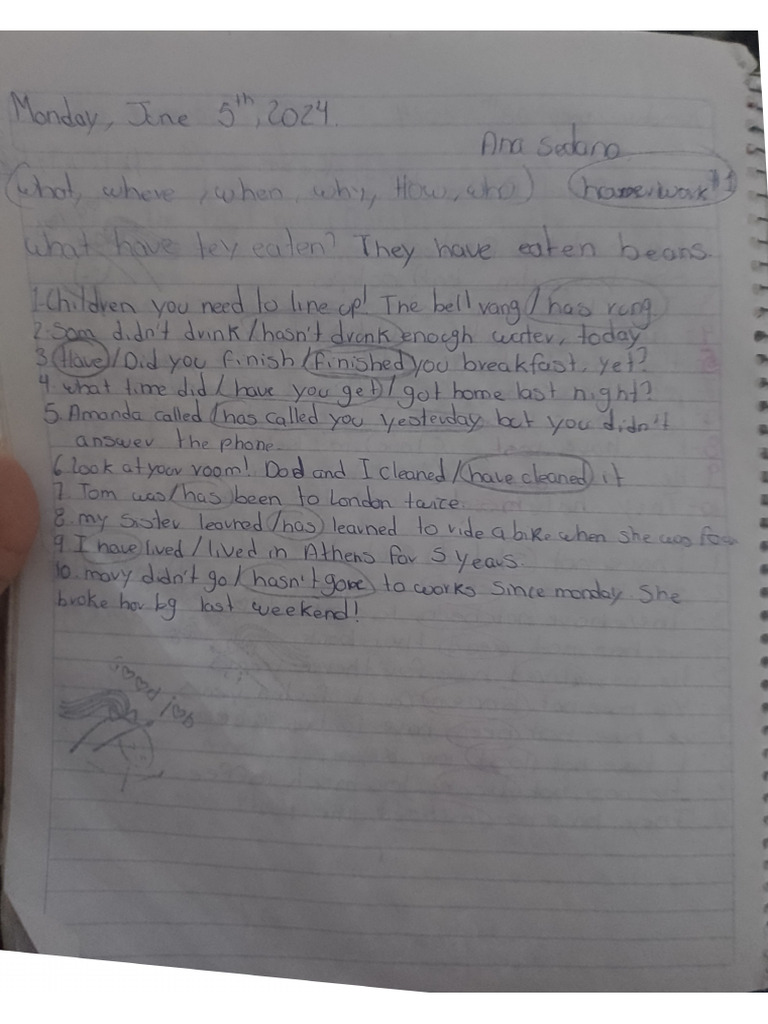 Monday, June 5th, 2024.
Ana Sedano
(what, where, when, why, How, who) homework #1
what have tey eaten? They have eaten beans.
1. Children you need to line up! The bell vang / has rung
2. Sam didn't drink / hasn't drunk enough water, today
3. Have / Did you finish / finished you breakfast, yet?
4. what time did / have you get / got home last night?
5. Amanda called / has called you yesterday but you didn't
answer the phone.
6. look at your room! Dad and I cleaned / have cleaned it
7. Tom was / has been to London twice.
8. my sister learned / has learned to ride a bike when she was
9. I have lived / lived in Athens for 5 years.
10. mary didn't go / hasn't gone to works since monday She
broke her leg last weekend!